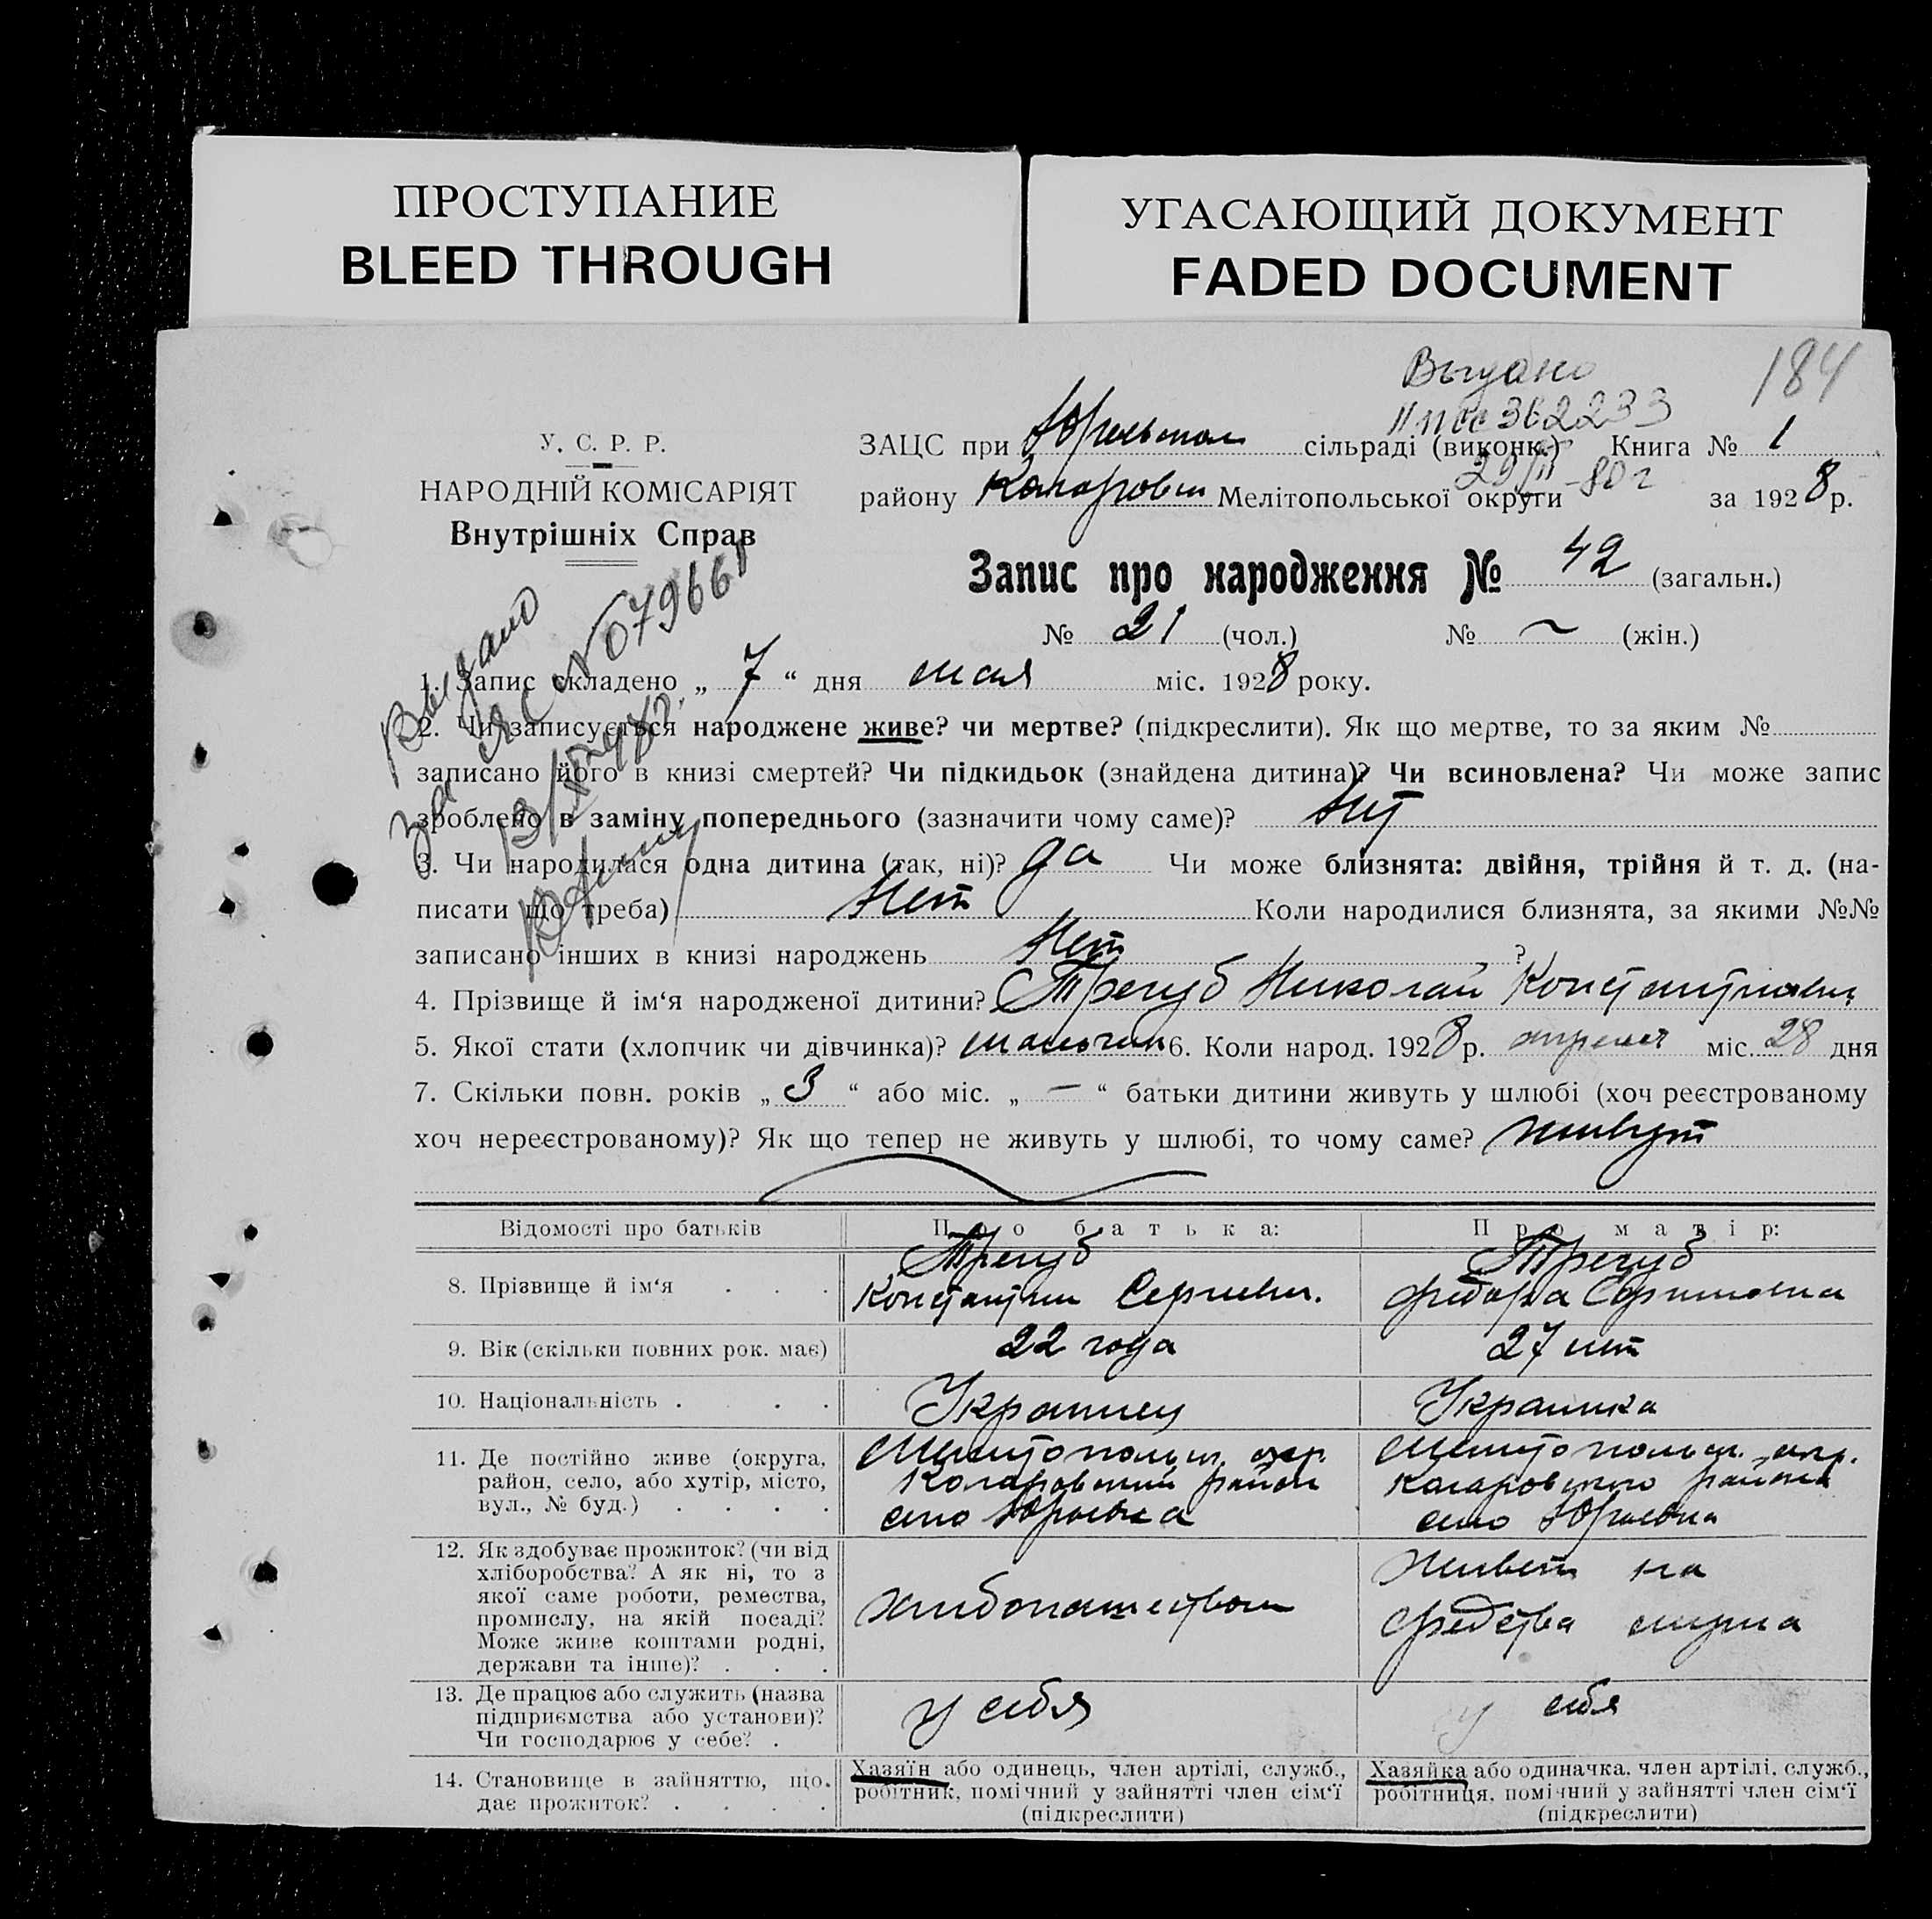 ПРОСТУПАНИЕ
BLEED THROUGH
УГАСАЮЩИЙ ДОКУМЕНТ
FADED DOCUMENT
Выдано
184
362233
У. С. Р. Р.
НАРОДНІЙ КОМІСАРІЯТ
Внутрішніх Справ
ЗАЦС при сільраді (виконк.) Книга № 1
району Коларовск Мелітопольської округи за 1928 р.
29/II-80 г
Запис про народження № 42 (загальн.)
№ 21 (чол.) № ~ (жін.)
Выдано
1. Запис складено „ 7 “ дня мая міс. 1928 року.
2. Чи записується народжене живе? чи мертве? (підкреслити). Як що мертве, то за яким №
записано його в книзі смертей? Чи підкидьок (знайдена дитина)? Чи всиновлена? Чи може запис
зроблено в заміну попереднього (зазначити чому саме)? Нет
3. Чи народилася одна дитина (так, ні)? да Чи може близнята: двійня, трійня й т. д. (на-
писати що треба) Нет Коли народилися близнята, за якими №№
записано інших в книзі народжень Нет ?
4. Прізвище й ім‘я народженої дитини? Трегуб Николай Константинович
5. Якої стати (хлопчик чи дівчинка)? мальчик 6. Коли народ. 1928 р. апреля міс. 28 дня
7. Скільки повн. років „ 3 “ або міс. „ — “ батьки дитини живуть у шлюбі (хоч реєстрованому
хоч нереєстрованому)? Як що тепер не живуть у шлюбі, то чому саме? живут
Відомості про батьків
Про батька:
Про матір:
8. Прізвище й ім‘я . . .
Трегуб
Константин Сергеевич.
Трегуб
9. Вік (скільки повних рок. має)
22 года
27 лет
10. Національність . . .
Украинец
Украинка
11. Де постійно живе (округа,
район, село, або хутір, місто,
вул., № буд.) . . . .
Мелитопольск. окр.
Коларовский район
село Юрьевка
Мелитопольск. окр.
Коларовского района
село Юрьевка
12. Як здобуває прожиток? (чи від
хліборобства? А як ні, то з
якої саме роботи, ремества,
промислу, на якій посаді?
Може живе коштами родні,
держави та інше)? . . .
хлебопашеством
Живет на
средства мужа
13. Де працює або служить (назва
підприємства або установи)?
Чи господарює у себе? .
у себя
у себя
14. Становище в зайняттю, що.
дає прожиток? . . . .
Хазяїн або одинець, член артілі, служб.,
робітник, помічний у зайнятті член сім‘ї
(підкреслити)
Хазяйка або одиначка, член артілі, служб.,
робітниця, помічний у зайнятті член сім‘ї
(підкреслити)